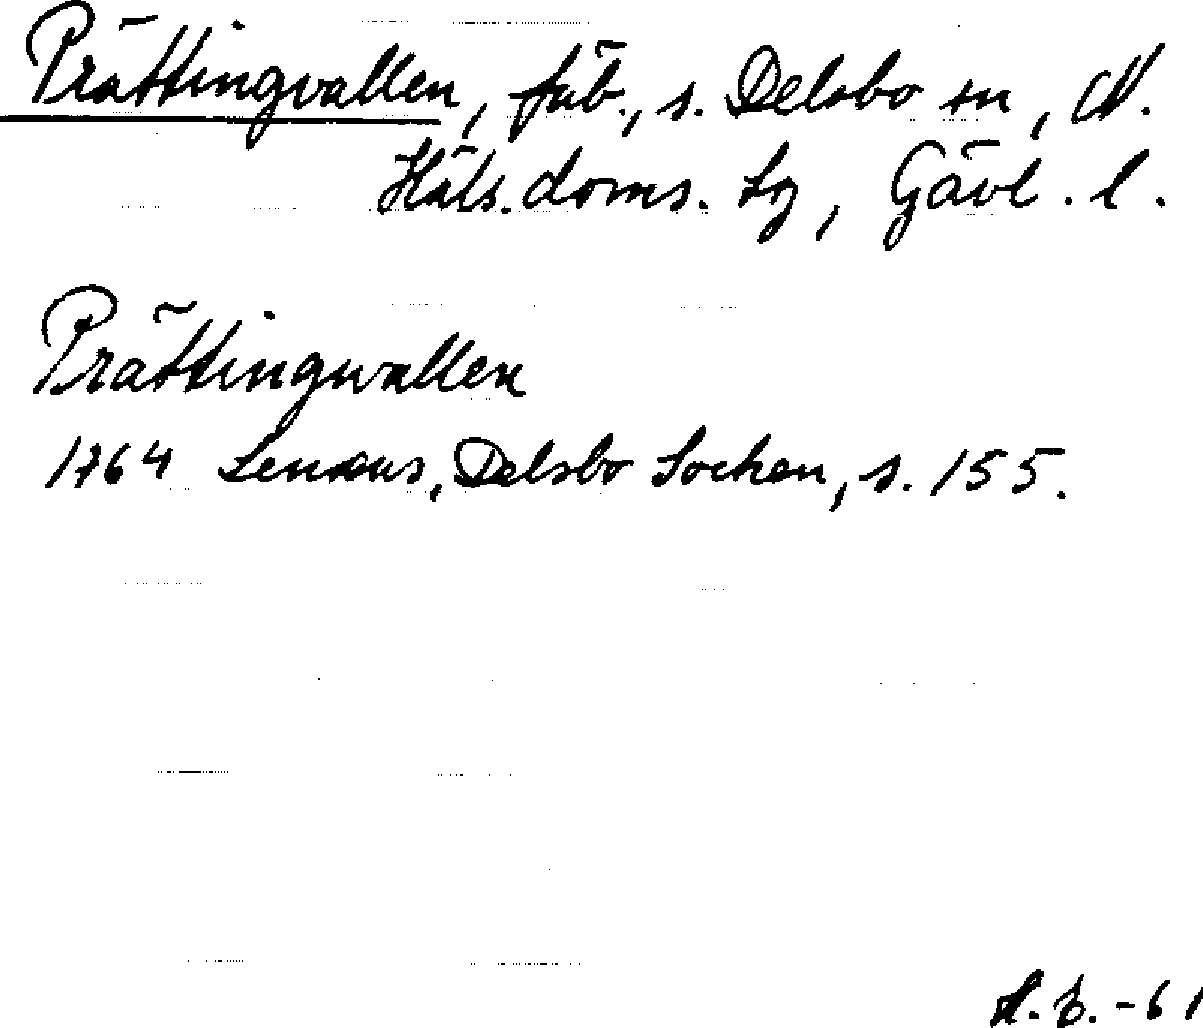 Prättingvallen, fäb., s. Delsbo sn, N.
Häls. doms. sg, Gävl. l.
Prättingwallen
1764 Lenæus, Delsbo Sochen, s. 155.
H. B. -61